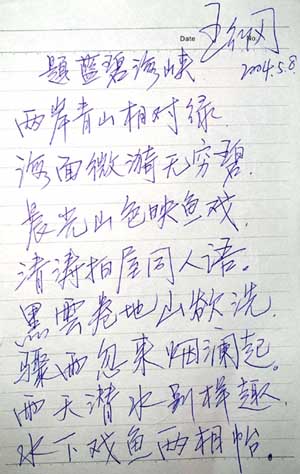 Date
No.
2004.5.8
題蓝碧海峡
两岸青山相对绿.
海面微漪无穷碧.
晨光山色映鱼戏.
清涛拍屋同人语。
黑雲卷地山欲洗.
骤雨忽来烟澜起。
雨天潜水别样趣.
水下戏鱼两相怡.